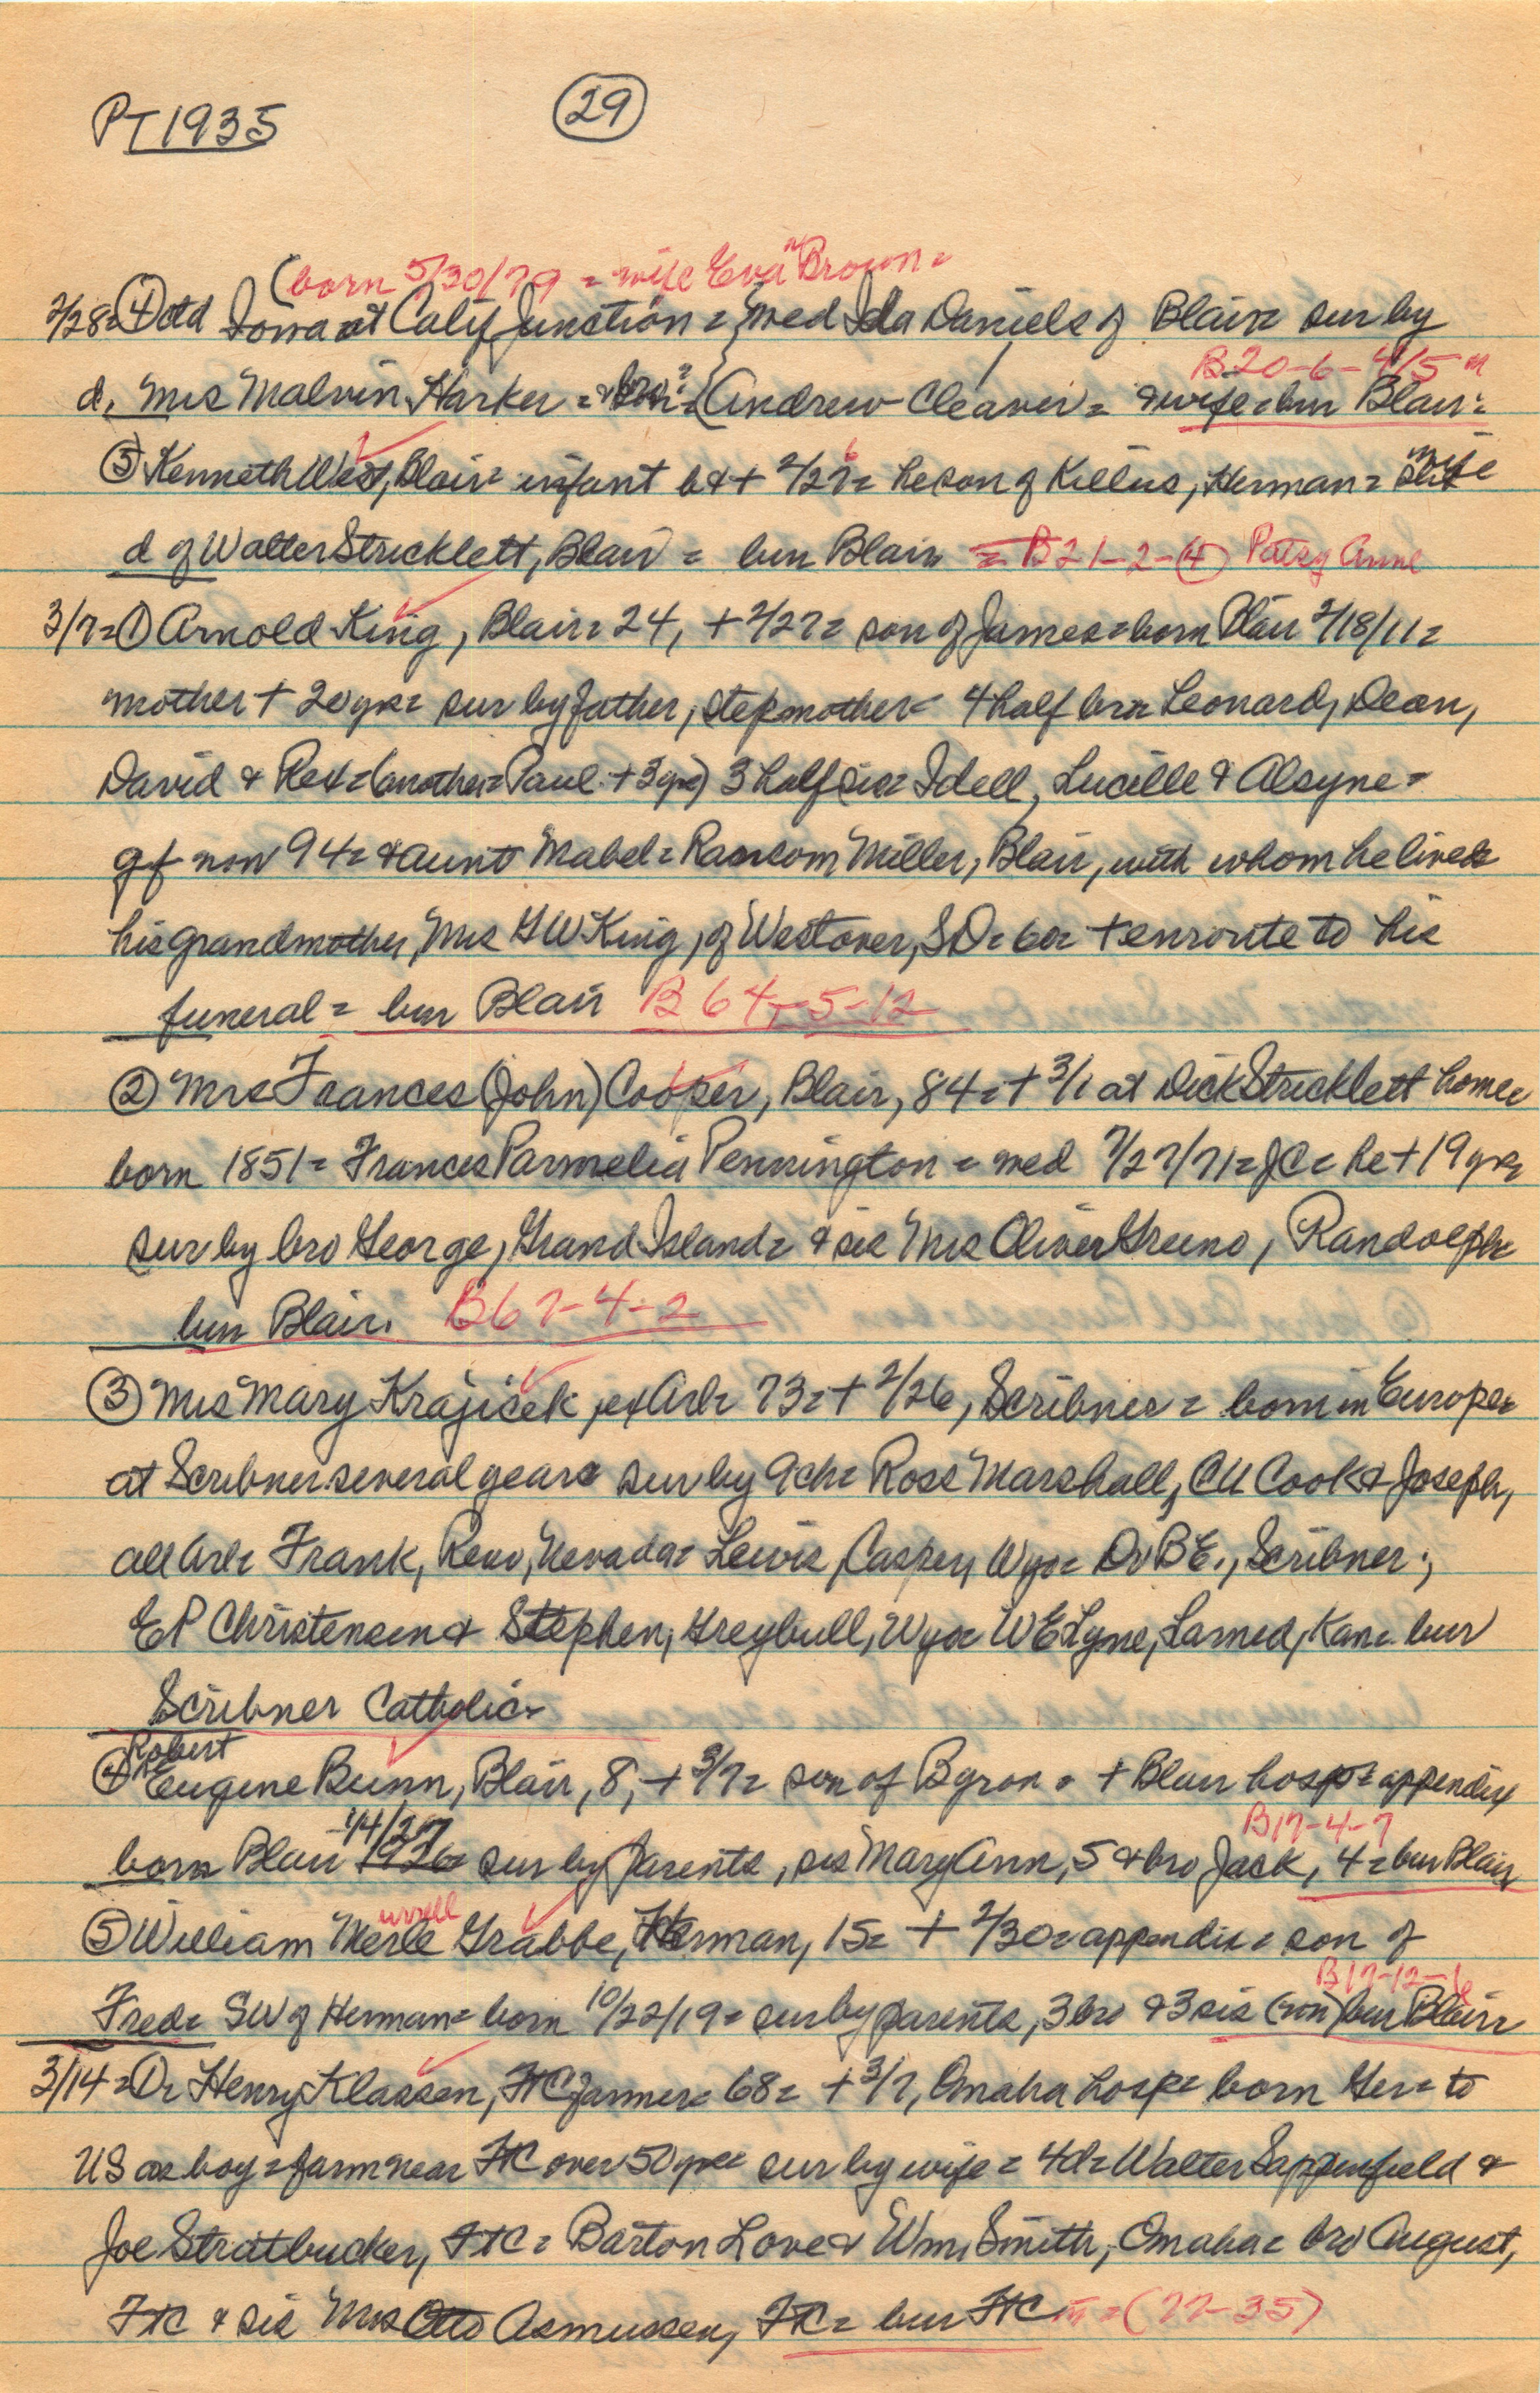 PT1935
29
(born 5/30/79 = wife Eva Brown =
2/28= ④ctd Iowa at Calif Junction = med Ida Daniels of Blair= sur by
d, Mrs Malvin Harker = (Andrew Cleaver = & wife = bur Blair = B20-6-4/5
⑤ Kenneth West, Blair= infant b&+ 2/27= he son of Killus, Herman = wife
d of Walter Stricklett, Blair = bur Blair = B21-2-④ Patsy Anne
3/7=① Arnold King, Blair= 24, + 2/27= son of James= born Blair 2/18/11=
mother + 20yrs= sur by father, stepmother= 4 half bro= Leonard, Dean,
David & Rex= (another= Paul + 3yrs) 3 half sis= Idell, Lucille & Alsyne=
gf now 94= & aunt= Mabel= Ransom Miller, Blair, with whom he lived=
his grandmother, Mrs GW King, of Westover, SD= 60= + enroute to his
funeral= bur Blair B 64-5-12
② Mrs Frances (John) Cooper, Blair, 84= + 3/1 at Dick Stricklett home=
born 1851= Frances Parmelia Pennington = med 7/27/71= JC= he + 19yrs=
sur by bro George, Grand Island= & sis Mrs Oliver Greeno, Randolph=
bur Blair. B67-4-2
③ Mrs Mary Krajicek, ex Arl= 73= + 2/26, Scribner = born in Europe=
at Scribner several years= sur by 9ch= Ross Marshall, CU Cook & Joseph,
all Arl= Frank, Reno, Nevada= Lewis, Casper, Wyo= Dr BE., Scribner;
EP Christensen & Stephen, Greybull, Wyo= WE Lyne, Larned, Kan= bur
Scribner Catholic=
Robert
④ Eugene Bunn, Blair, 8, + 3/7= son of Byron = + Blair hosp= appendix
born Blair 1926= 1/4/27 sur by parents, sis Mary Ann, 5 & bro Jack, 4= bur Blair B17-4-7
⑤ William Merle urrell Grabbe, Herman, 15= + 2/30= appendix= son of
Fred= SW of Herman= born 10/22/19= sur by parents, 3 bro & 3 sis (nn) bur Blair= B17-12-6
3/14=① Henry Klassen, FtC farmer= 68= + 3/7, Omaha hosp= born Ger= to
US as boy= farm near FtC over 50yrs= sur by wife= 4d= Walter Sappenfield &
Joe Stratbucker, FtC= Barton Love & Wm, Smith, Omaha= bro August,
FtC & sis Mrs Otto Asmussen, FtC= bur FtC = (77-35)